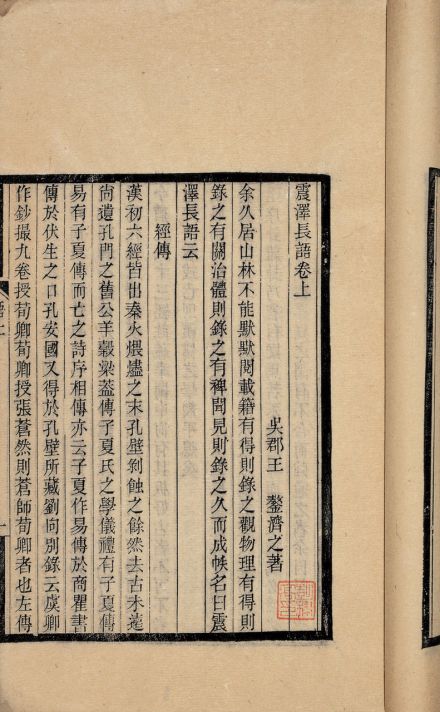 震澤長語卷上
吳郡王 鏊濟之著
余久居山林不能默默閱載籍有得則錄之觀物理有得則
錄之有關治體則錄之有稗聞見則錄之久而成帙名曰震
澤長語云
經傳
漢初六經皆出秦火煨燼之末孔壁剝蝕之餘然去古未遠
尚遺孔門之舊公羊穀梁蓋傳子夏氏之學儀禮有子夏傳
易有子夏傳而亡之詩序相傳亦云子夏作易傳於商瞿書
傳於伏生之口孔安國又得於孔壁所藏劉向別錄云虞卿
作鈔撮九卷授荀卿荀卿授張蒼然則蒼師荀卿者也左傳